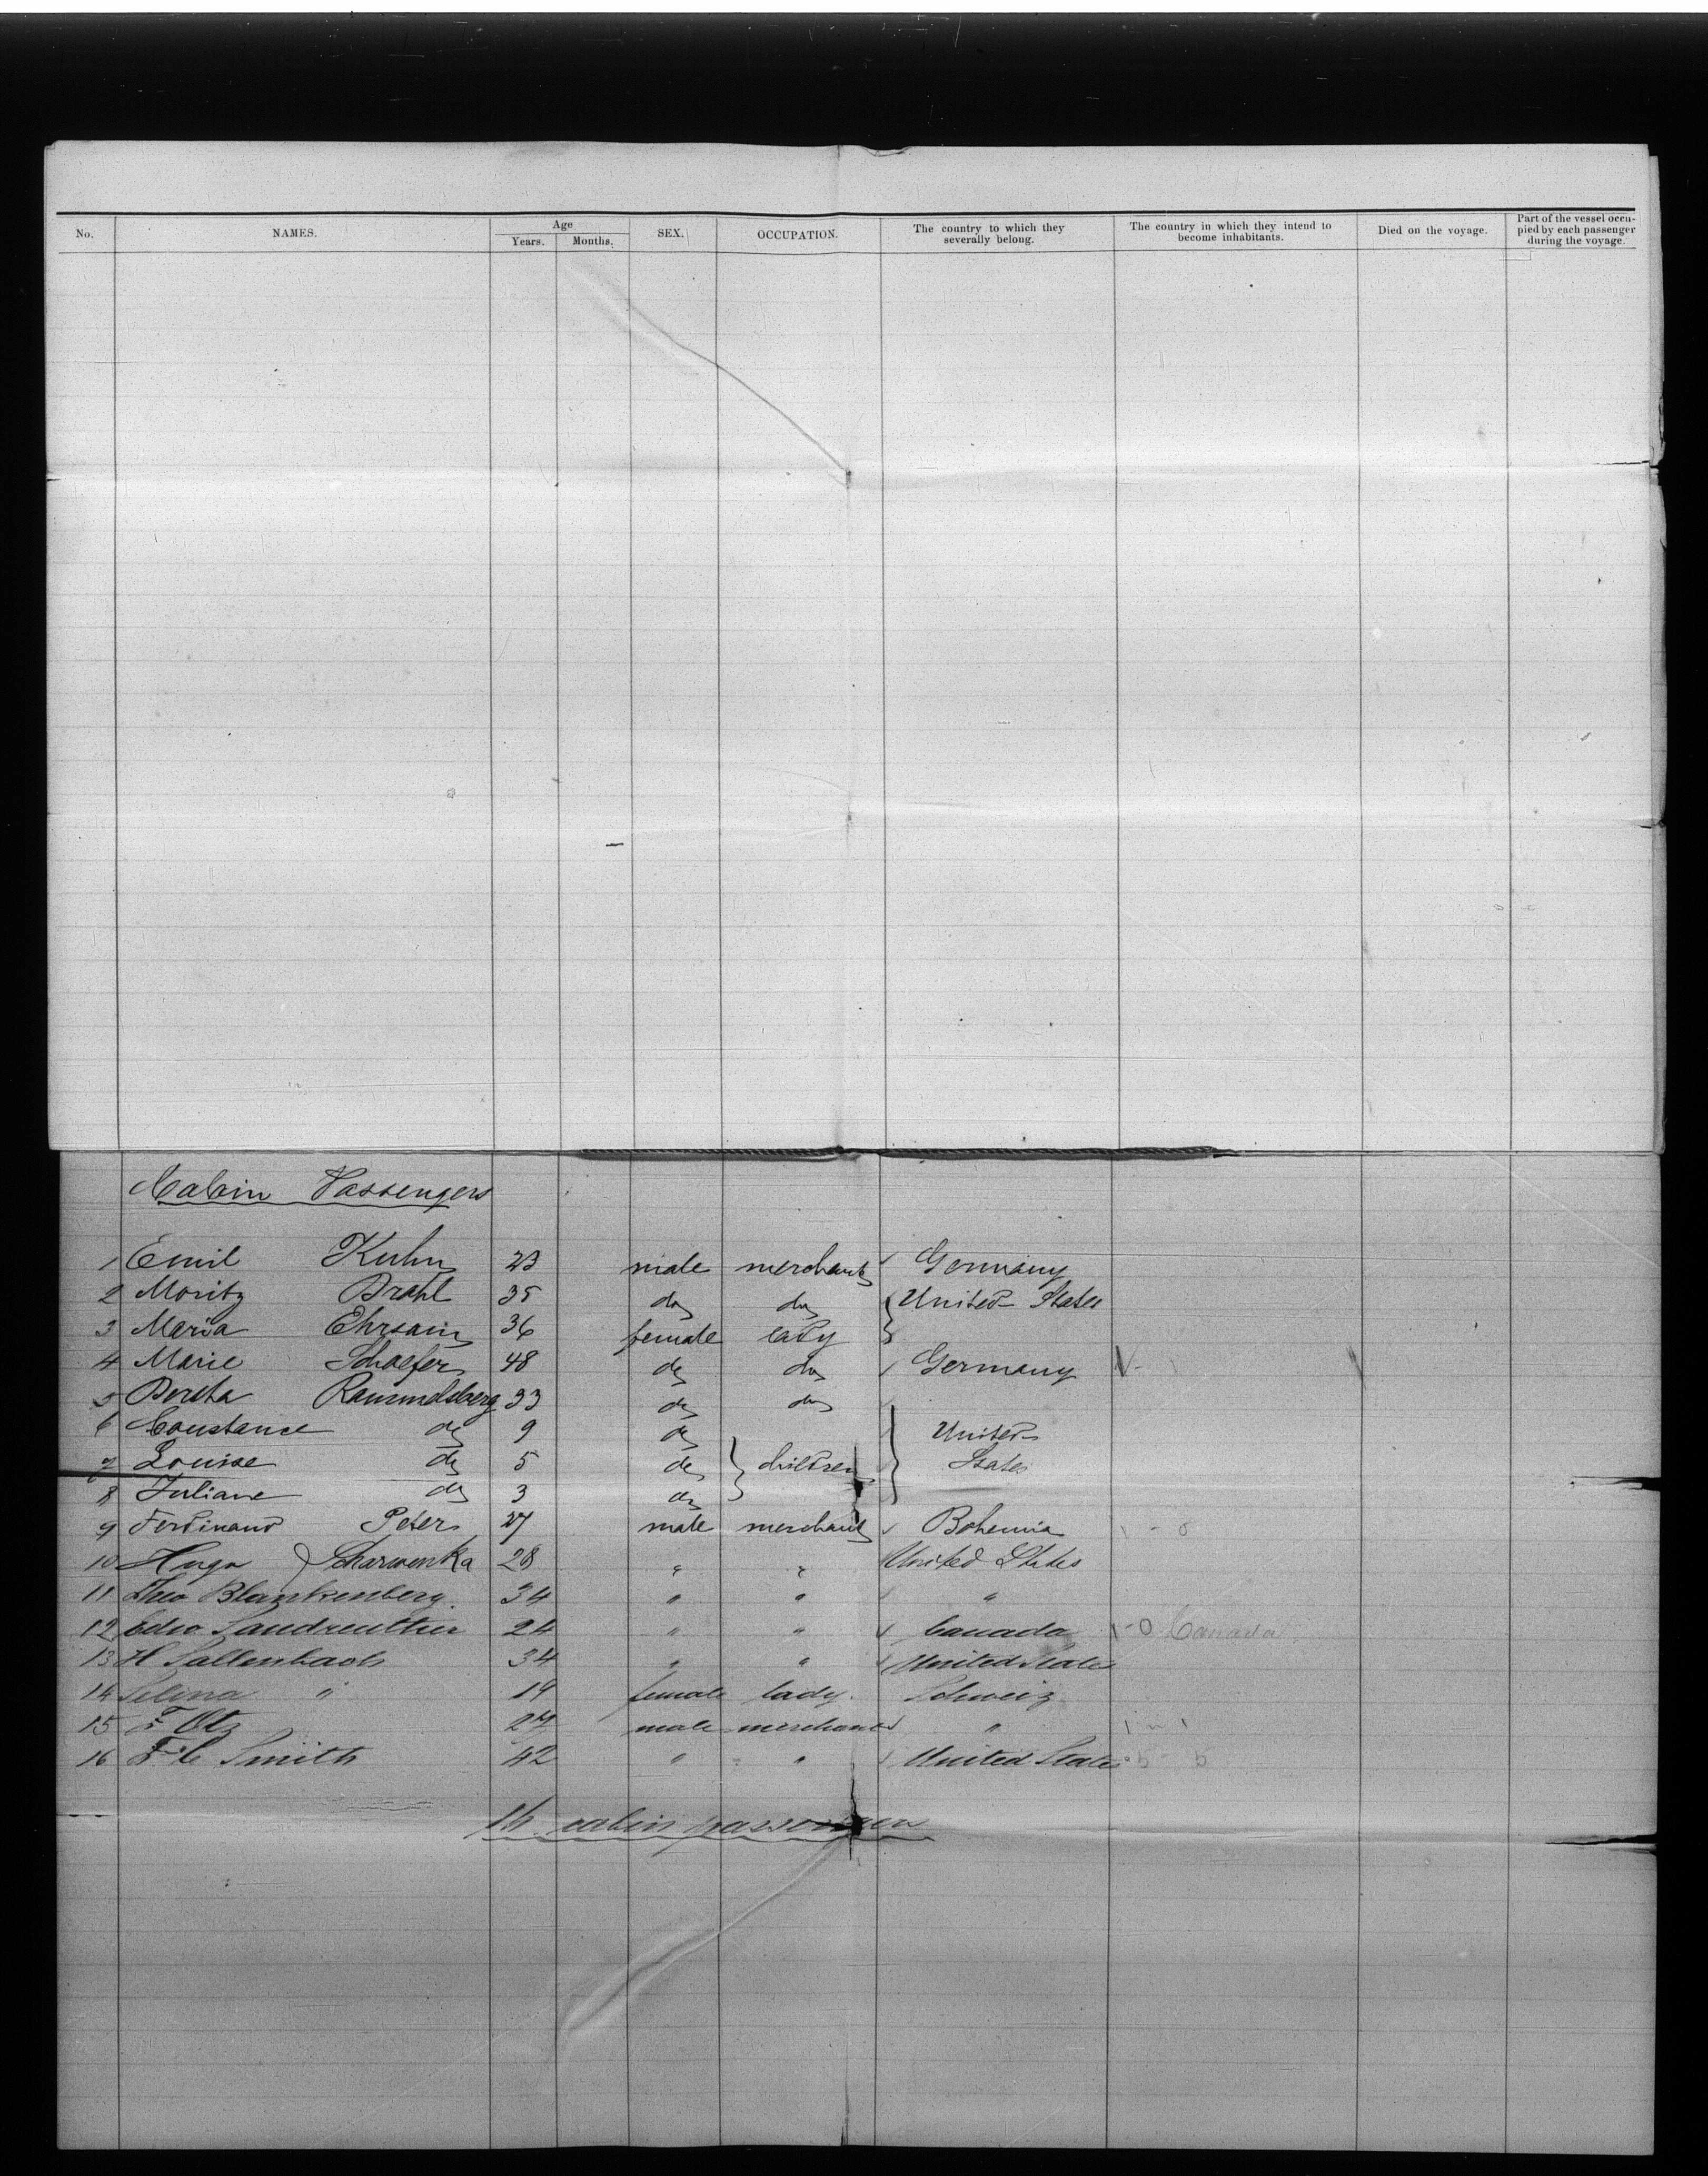 No. NAMES. Age Years. Months. SEX. OCCUPATION. The country to which they severally belong. The country in which they intend to become inhabitants. Died on the voyage. Part of the vessel occupied by each passenger during the voyage.
Cabin Passengers
1 Emil Kuhn 23 male merchant Germany
2 Moritz Brahl 35 do do United States
3 Maria Ehrsam 36 female lady
4 Marie Schaefer 48 do do Germany
5 Bertha Rammelsberg 33 do do
6 Constance do 9 do United
7 Louise do 5 do children States
8 Juliane do 3 do
9 Ferdinand Peter 27 male merchant Bohemia
10 Hugo Scharwenka 28 " " United States
11 Theo Blankenberg. 34 " " "
12 Sandreuther 24 " " Canada 1-0 Canada
13 H Sallenbach 34 " " United States
14 Selina " 19 female lady. Schweiz
15 F Otz 27 male merchant "
16 F. C Smith 42 " " United States
16 cabin passengers